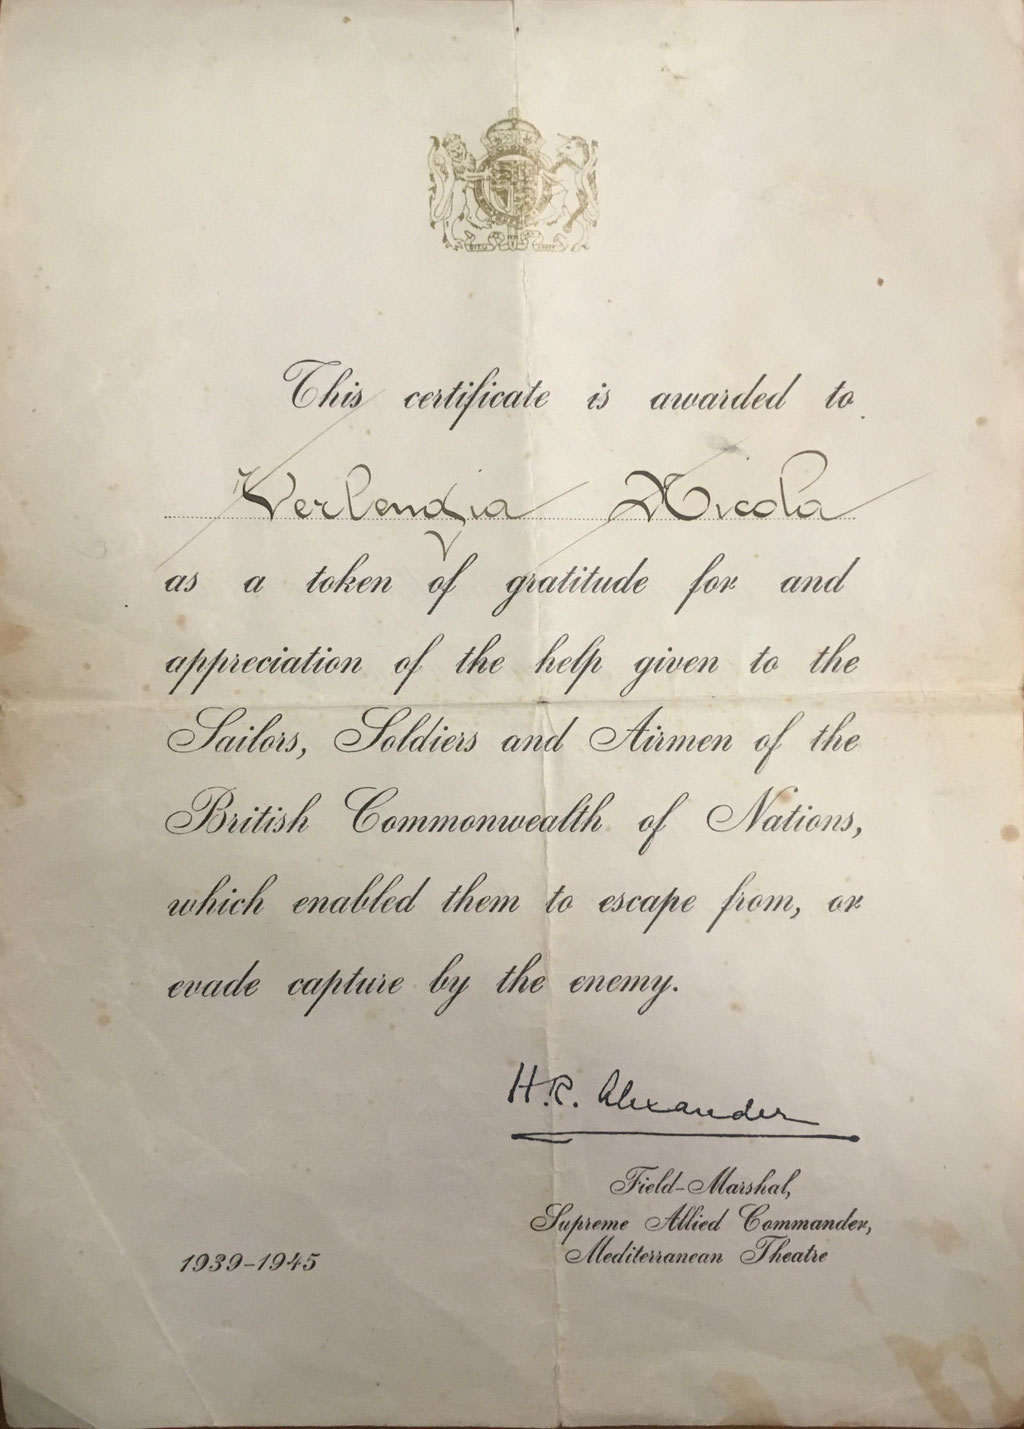 This certificate is awarded to
Verlengia Nicola
as a token of gratitude for and
appreciation of the help given to the
Sailors, Soldiers and Airmen of the
British Commonwealth of Nations,
which enabled them to escape from, or
evade capture by the enemy.
H.R. Alexander
Field-Marshal,
Supreme Allied Commander,
Mediterranean Theatre
1939-1945